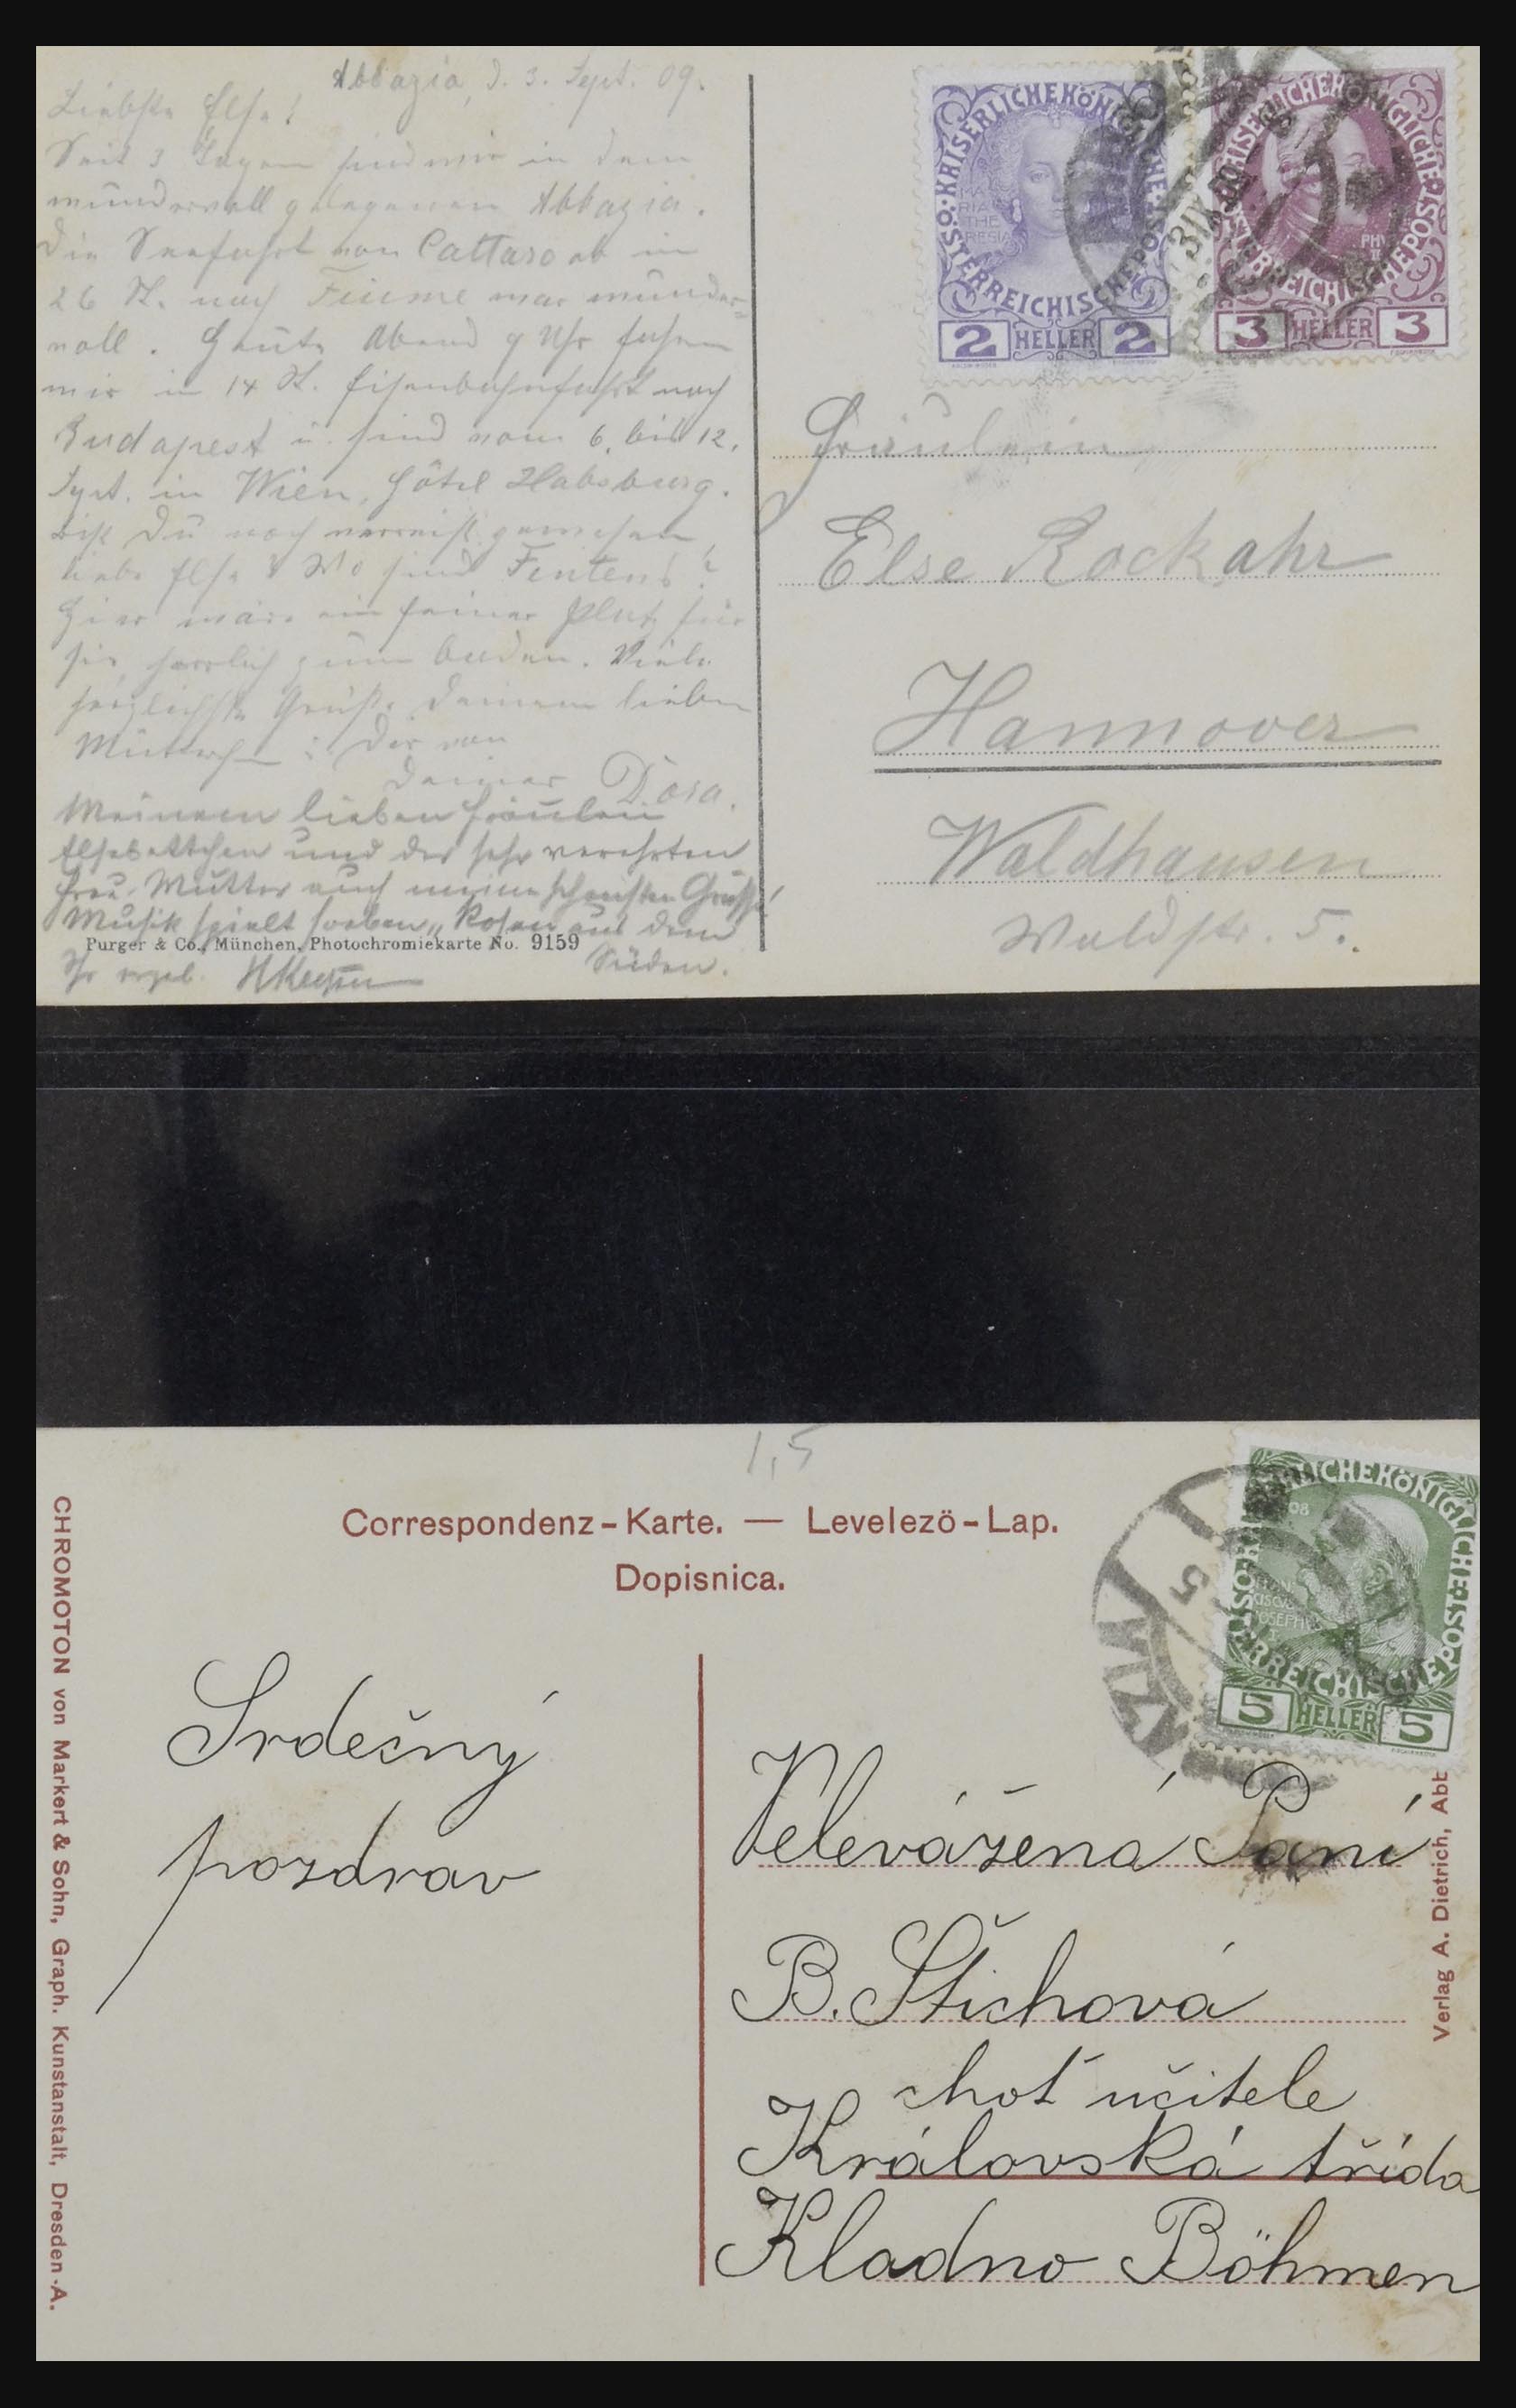 Abbazia, d. 3. Sept. 09.
Liebste Else!
Seit 3 Tagen sind wir in dem
wundervoll gelegenen Abbazia.
Die Seefahrt von Cattaro ab in
26 St. nach Fiume war wunder-
voll. Heute Abend 9 Uhr fahren
wir in 14 St. Eisenbahnfahrt nach
Budapest u. sind vom 6. bis 12.
Sept. in Wien, Hôtel Habsburg.
Bist Du noch verreist gewesen,
liebe Else? Wo sind
Hier wäre ein feiner Platz für
sie, herrlich zum baden. Viele
herzlichste Grüße Deinem lieben
Dir von
Deiner Dora.
Meinem lieben Fräulein
und der sehr verehrten
Frau Mutter auch meine schönsten Grüße!
Musik spielt soeben „Rosen aus dem
Süden.
Ihr ergeb.
Purger & Co., München, Photochromiekarte No. 9159
ÖSTERREICHISCHE POST
KAISERLICHE KÖNIGLICHE
2 HELLER 2
KAISERLICHE KÖNIGLICHE
ÖSTERREICHISCHE POST
3 HELLER 3
3 IX 09
Fräulein
Else Rockahr
Hannover
Waldhausen
Waldstr. 5.
1,5
Correspondenz-Karte. — Levelezö-Lap.
Dopisnica.
CHROMOTON von Markert & Sohn, Graph. Kunstanstalt, Dresden-A.
Verlag A. Dietrich, Abb
5 HELLER 5
Srdečný
pozdrav
Velevážená Paní
B. Štichová
choť učitele
Královská třída
Kladno Böhmen